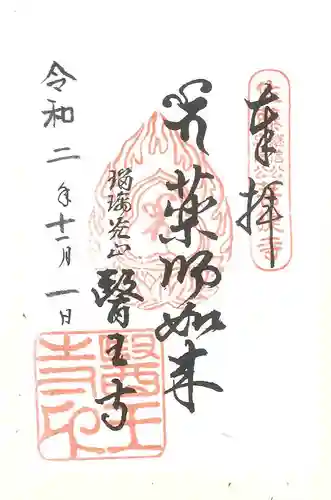 奉拝
薬師如来
瑠璃光山
醫王寺
令和二年十一月一日
醫王寺印